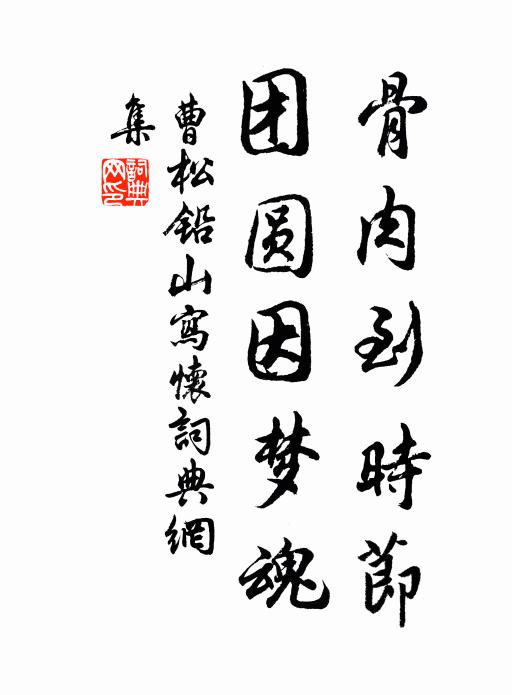 骨肉到時節
团圆因梦魂
曹松铅山寫懷詞典網
集
詞典网印